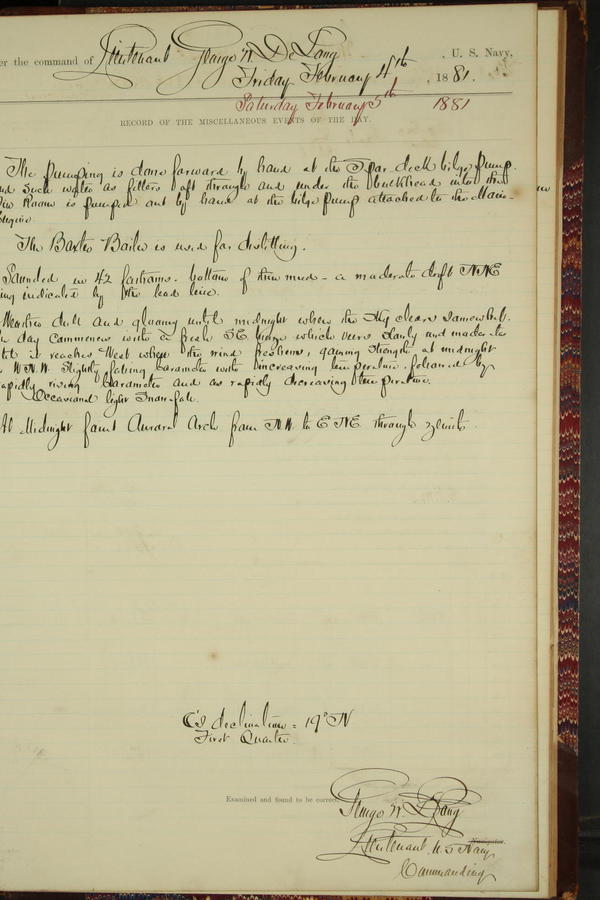 er the command of Lieutenant George W. De Long , U. S. Navy,
Friday February 4th , 1881.
Saturday February 5th 1881
RECORD OF THE MISCELLANEOUS EVENTS OF THE DAY.
The pumping is done forward by hand at the Spar deck bilge pump,
and such water as filters aft through and under the bulkhead into the
Fire Room is pumped out by hand at the bilge pump attached to the Main-
Engine
The Baxter Boiler is used for distilling.
Sounded in 42 fathoms. bottom of thin mud - a moderate drift NNE
ing indicated by the lead line.
Weather dull and gloomy until midnight when the sky clears somewhat.
day commences with a fresh SE breeze which veers slowly and moderates
until it reaches West when the wind freshens, gaining strength at midnight
WNW. Slightly falling barometer with increasing temperature, followed by
rapidly rising barometer and as rapidly decreasing temperature.
Occasional light Snow-fall.
At Midnight faint Auroral Arch from NW to ENE through zenith.
☾'s declination = 19° N
First Quarter.
Examined and found to be correct.
George W. De Long
Lieutenant U.S Navy
Navigator.
Commanding